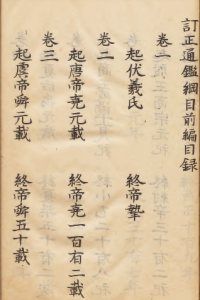 訂正通鑑綱目前編目錄
卷一
起伏羲氏 終帝摯
卷二
起唐帝堯元載 終帝堯一百有二載
卷三
起虞帝舜元載 終帝舜五十載